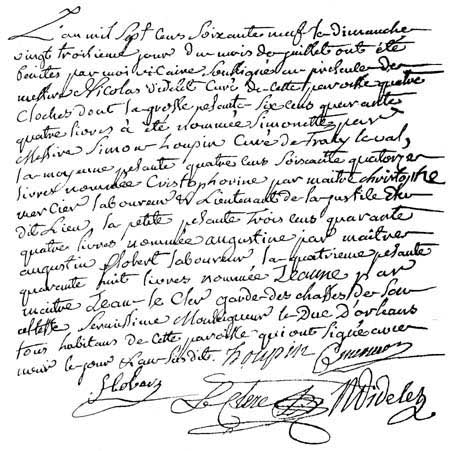 L'an mil Sept Cens Soixante neuf le dimanche
vingt troisieme jour du mois de juillet ont été
benites par moi vicaire soussigné en présence de
messire Nicolas Videlet Curé de Cette paroisse quatre
Cloches dont la grosse pesante Six cens quarante
quatre livres à été nommée Simonette par
Messire Simon houpin Curé de Tracy leval,
la moyenne pesante quatre cens Soixante quatorze
livres nommée Cristophorine par maitre christophe
mercier laboureur & Lieutenant de la justice du
dit Lieu, la petite pesante trois cens quarante
quatre livres nommée augustine par maitre
augustin flobert laboureur, la quatrieme pesante
quarente huit livres nommée Jeanne par
maitre Jean le Cler garde des chasses de Son
altesse Serenissime Monseigneur le Duc d'orleans
tous habitans de Cette paroisse qui ont Signé avec
nous le jour & an susdit. houpin
flobert Le Clere NVidelet